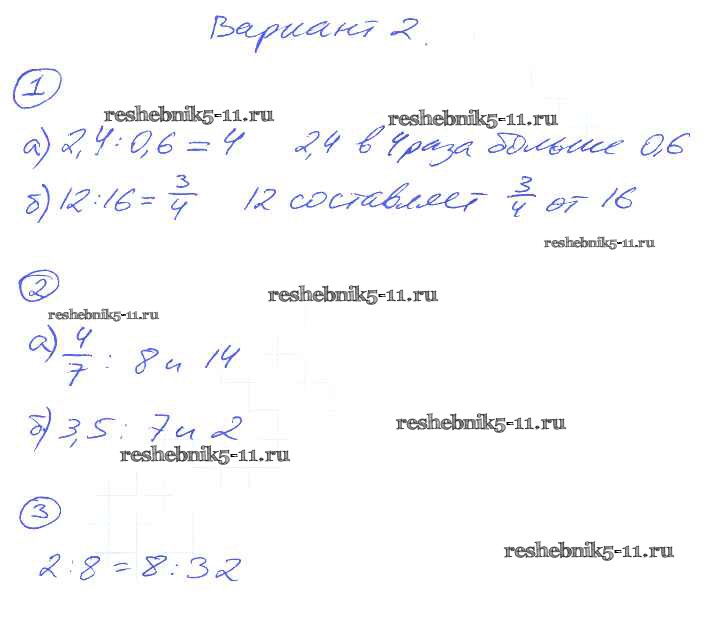 Вариант 2.
1
reshebnik5-11.ru reshebnik5-11.ru
а) 2,4 : 0,6 = 4 2,4 в 4 раза больше 0,6
б) 12 : 16 = 3/4 12 составляет 3/4 от 16
reshebnik5-11.ru
2
reshebnik5-11.ru
reshebnik5-11.ru
а) 4/7 : 8 и 14
б) 3,5 : 7 и 2
reshebnik5-11.ru
reshebnik5-11.ru
3
2 : 8 = 8 : 32
reshebnik5-11.ru